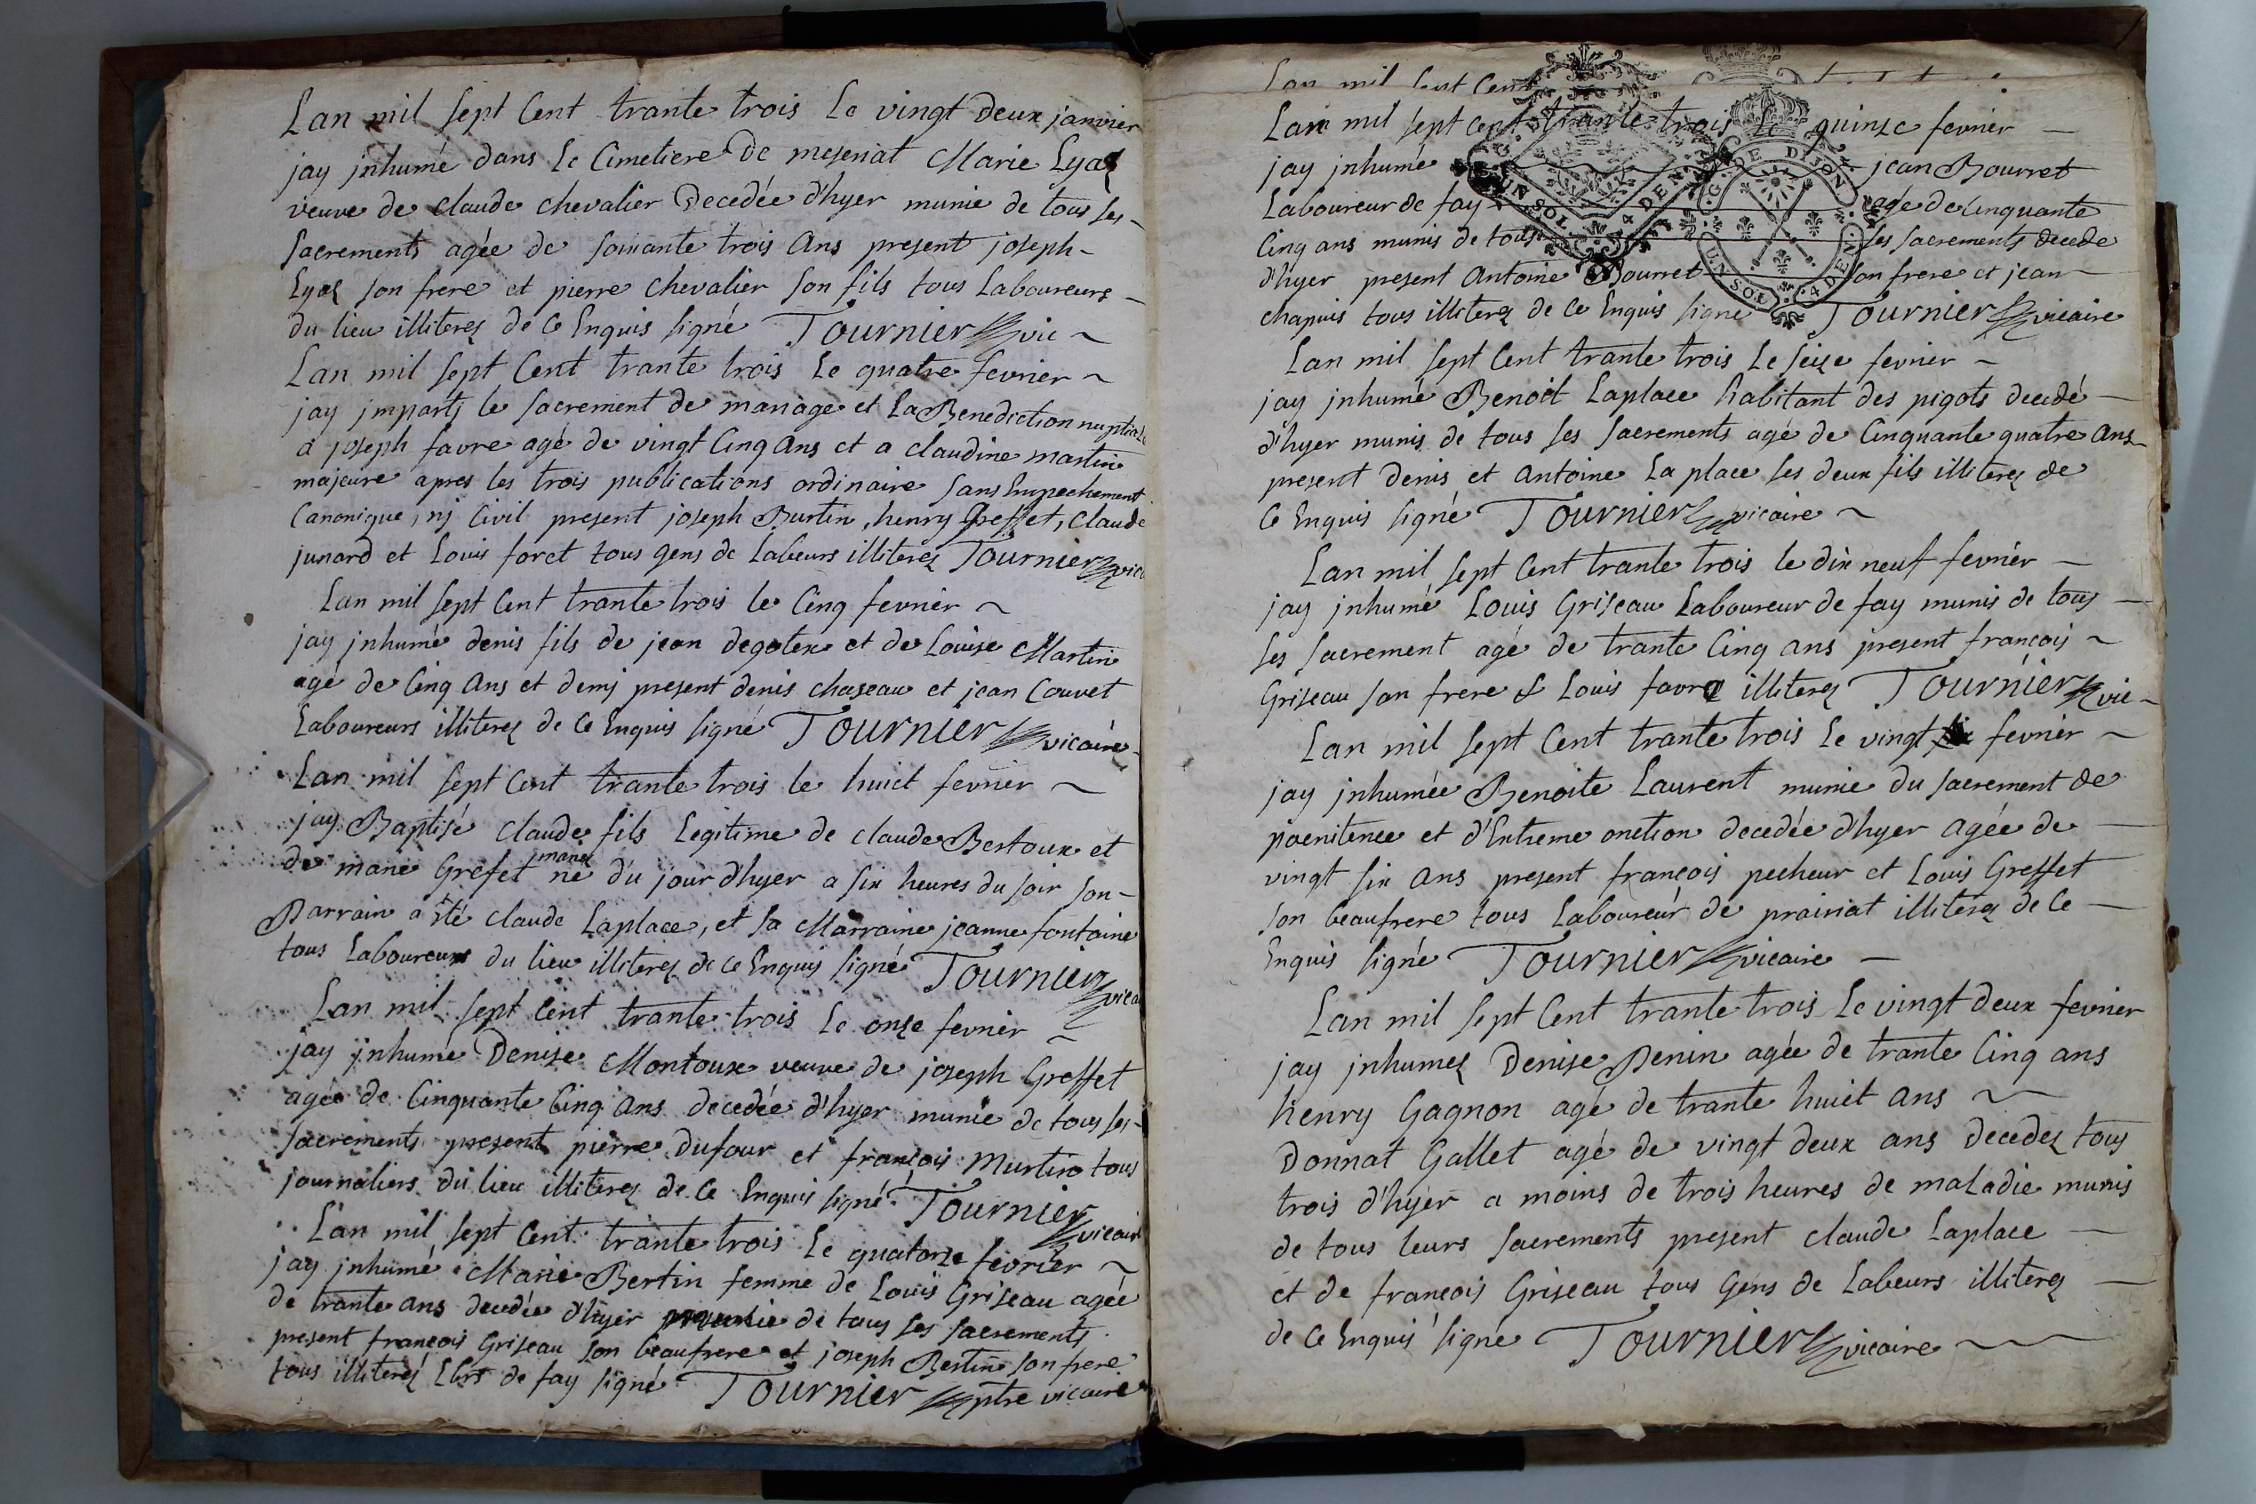 Lan mil sept Cent trante trois Le vingt deux janvier
jay jnhumé dans le Cimetiere De meseriat Marie Lyaz
veuve de claude chevalier Decedée d'hyer munie de tous ses
sacrements agée de soixante trois Ans present joseph
Lyaz son frere et pierre chevalier son fils tous Laboureurs
du lieu illiterez de Ce Enquis signé Tournier vic
Lan mil sept Cent trante trois Le quatre fevrier
jay jmparti le sacrement de mariage et La Benediction nuptiale
a joseph favre agé de vingt Cinq Ans et a claudine martin
majeure apres les trois publications ordinaire sans Empechement
Canonique, nj Civil present joseph Burtin, henry Greffet, Claude
junard et Louis foret tous gens de Labeurs illiterez Tournier vica
Lan mil sept Cent trante trois le Cinq fevrier
jay jnhumé denis fils de jean degotex et de Louise Martin
agé de Cinq Ans et demj present denis chaseau et jean Couvet
Laboureurs illiterez de Ce Enquis signé Tournier vicaire
Lan mil sept Cent trante trois le huict fevrier
jay Baptisé claude fils Legitime de claude Bertoux et
de marie Grefet mariez né du jour d'hyer a six heures du soir son
Parrain a été claude Laplace, et sa Marraine jeanne fontaine
tous Laboureurs du lieu illiterez de Ce Enquis signé Tournier vica
Lan mil sept Cent trante trois Le onze fevrier
jay jnhumé Denise Montoux veuve de joseph Greffet
agée de Cinquante Cinq Ans decedée d'hyer munie de tous ses
sacrements present pierre Dufour et françois Murtin tous
journaliers du lieu illiterez de Ce Enquis signé Tournier vicaire
Lan mil sept Cent trante trois Le quatorze fevrier
jay jnhumé Marie Bertin femme de Louis Griseau agée
de trante ans decedée d'hyer munie de tous ses sacrements
present françois Griseau son beaufrere et joseph Bertin son frere
tous illiterez Lbrs de fay signé Tournier ptre vicaire
Lan mil sept Cent
Lan mil sept cent trante trois Le quinze fevrier
jay jnhumé jean Bourret
Laboureur de fay agé de Cinquante
Cinq ans munis de tous ses sacrements decede
d'hyer present Antoine Bourret son frere et jean
chapuis tous illiterez de Ce Enquis signé Tournier vicaire
G. DE DIJON.
UN SOL. 4 DEN.
UN SOL 4 DEN.
Lan mil sept Cent trante trois Le seize fevrier
jay jnhumé Benoit Laplace habitant des pigots decedé
d'hyer munis de tous ses sacrements agé de Cinquante quatre Ans
present denis et Antoine La place ses deux fils illiterez de
Ce Enquis signé Tournier vicaire
Lan mil sept Cent trante trois le dix neuf fevrier
jay jnhumé Louis Griseau Laboureur de fay munis de tous
ses sacrement agé de trante Cinq ans present françois
Griseau son frere & Louis favre illiterez Tournier vic
Lan mil sept Cent trante trois Le vingt fevrier
jay jnhumée Benoite Laurent munie du sacrement de
poenitence et d'Extreme onction decedée d'hyer agée de
vingt six ans present françois pecheur et Louis Greffet
son beaufrere tous Laboureur de prairiat illiterez de Ce
Enquis signé Tournier vicaire
Lan mil sept Cent trante trois Le vingt deux fevrier
jay jnhumez Denise Penin agée de trante Cinq ans
henry Gagnon agé de trante huict ans
Donnat Gallet agé de vingt deux ans decedez tous
trois d'hyer a moins de trois heures de maladie munis
de tous leurs sacrements present claude Laplace
et de françois Griseau tous Gens de Labeurs illiterez
de Ce Enquis signé Tournier vicaire